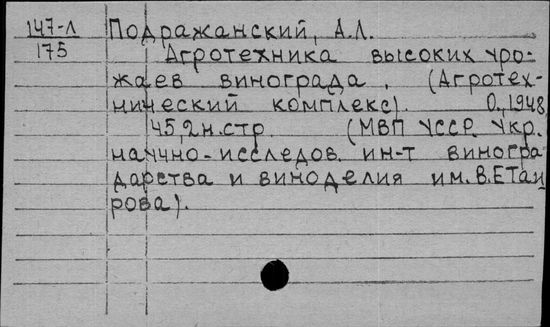 147-Л
175
Подражанский, А.Л.
Агротехника высоких уро-
жаев винограда. (Агротех-
нический комплекс). О.,1948
145,2н.стр. (МВП УССР. Укр.
научно-исследов. ин-т виногра
дарства и виноделия им.В.ЕТаи
рова).